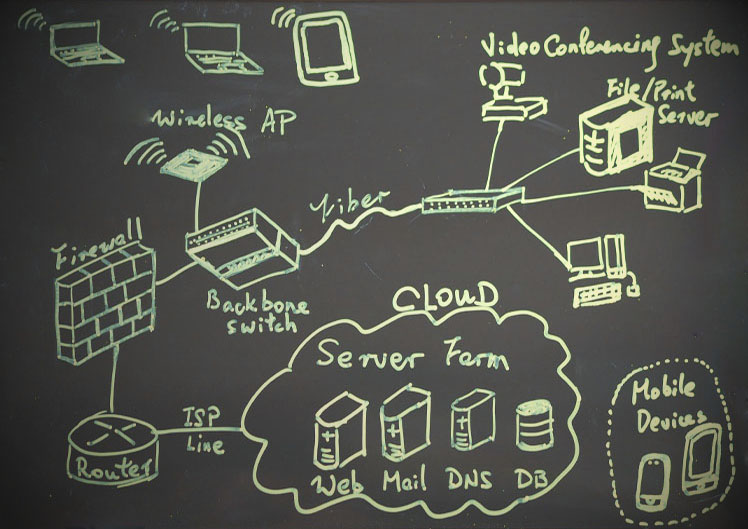 Video Conferencing System
File/Print
Server
Wireless AP
Fiber
Firewall
Backbone
switch
CLOUD
Server Farm
ISP
Line
Router
Web Mail DNS DB
Mobile
Devices